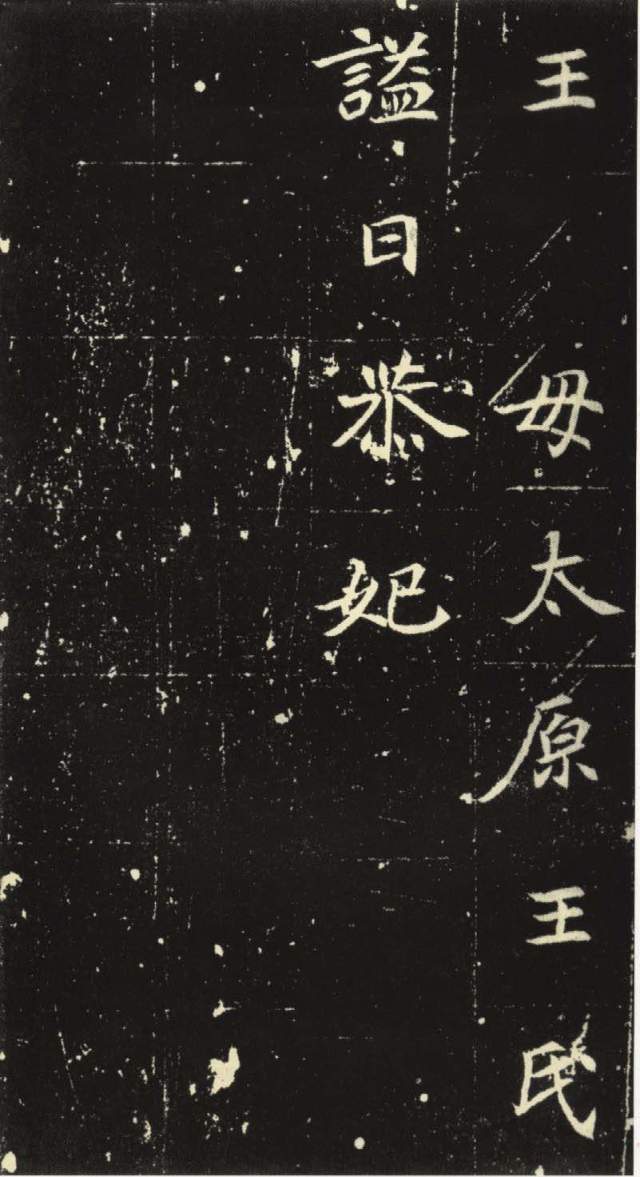 王母太原王氏
謚曰恭妃